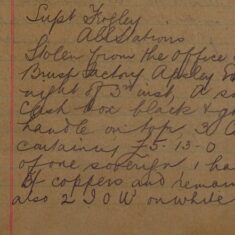 Supt Frogley
All Stations
Stolen from the office
Brush Factory, Apsley
night of 3rd inst, A
Cash box black &
handle on top, 3
containing £5-13-0
of one sovereign 1 ha
of coppers and remain
also 2 I O U on white